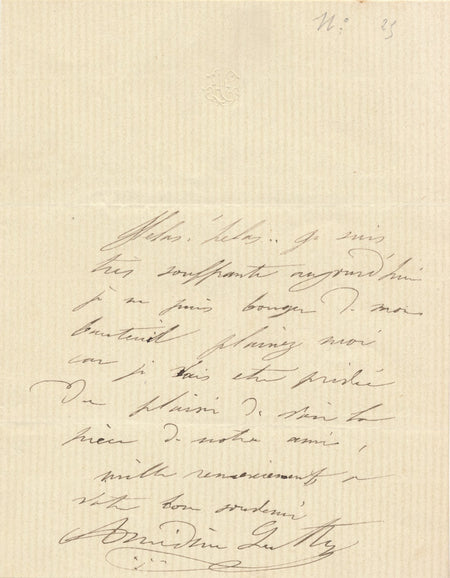 No 25
Hélas. hélas.. je suis
très souffrante aujourd'hui
je ne puis bouger de mon
fauteuil plainez moi
car je vais etre privée
Du plaisir de voir la
pièce de notre ami,
mille remerciements a
votre bon souvenir